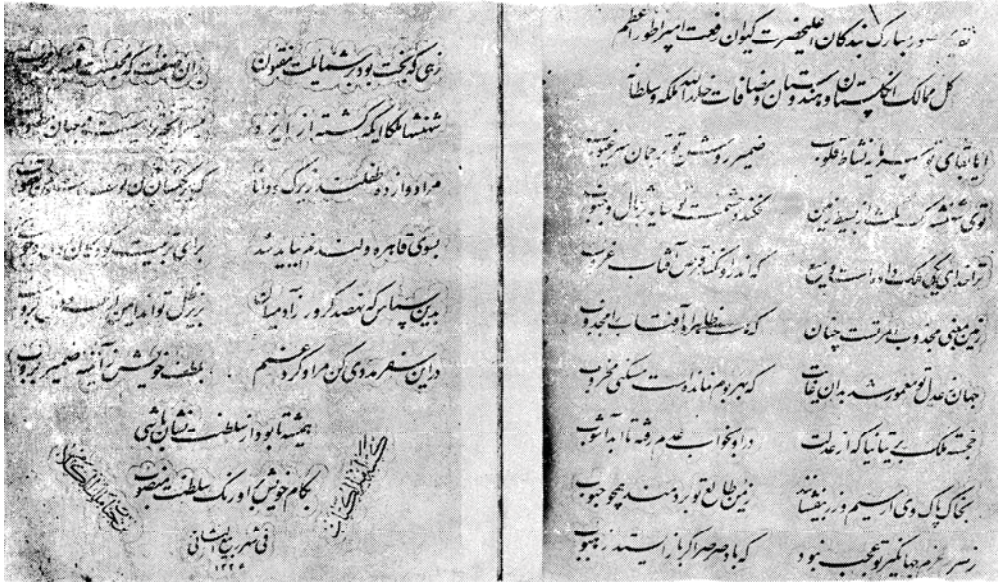 حضور مبارک بندگان اعلیحضرت کیوان رفعت امپراطور اعظم
کل ممالک انگلستان و هندوستان و مضافات خلدالله ملکه و سلطانه
ایا بقای تو سرمایه نشاط قلوب ضمیر روشن تو ترجمان سر غیوب
توی شهنشه که ملکت از بسیط زمین فکند حشمت تو سایه بر شمال و جنوب
ترا خدای یکی ملک داده است وسیع که اندرو نکند قرص آفتاب غروب
زمین بمعنی مجذوب امر تست چنان که هست ظاهرا آفتاب را مجذوب
جهان ز عدل تو معمور شد بدان غایت که بهر بوم نماندست مسکنی مخروب
خجسته ملک بریتانیا که از عدلت در او بخواب عدم رفته تا ابد آشوب
بخاک پاک وی ار سیم و زر بیفشانند ز طالع تو بر دمند همچو حبوب
ز سیر عزم جهانگیر تو عجب نبود که باد صرصر اگر باز ایستد ز هبوب
زهی که بخت بود بر شمایلت مفتون بر آن صفت که
شهنشها ملکا ایکه گشته از ایزد میسر آنچه ترا هست در جهان مطلوب
مرا دوازده طفلند زیرک و دانا که
بسوی قاهره و لندنم بباید شد برای تربیت کودکان
بدین سپاس که نهصد کرور زآدمیان بزیر ظل تواند ایمن از کروب
در این سفر مددی کن مرا و کرد غم بلطف خویش ز آئینه ضمیر بروب
همیشه تا بود از سلطنت نشان باشی
بکام خویش بر اورنگ سلطنت منصوب
فی شهر ربیع الثانی
۱۳۲۶